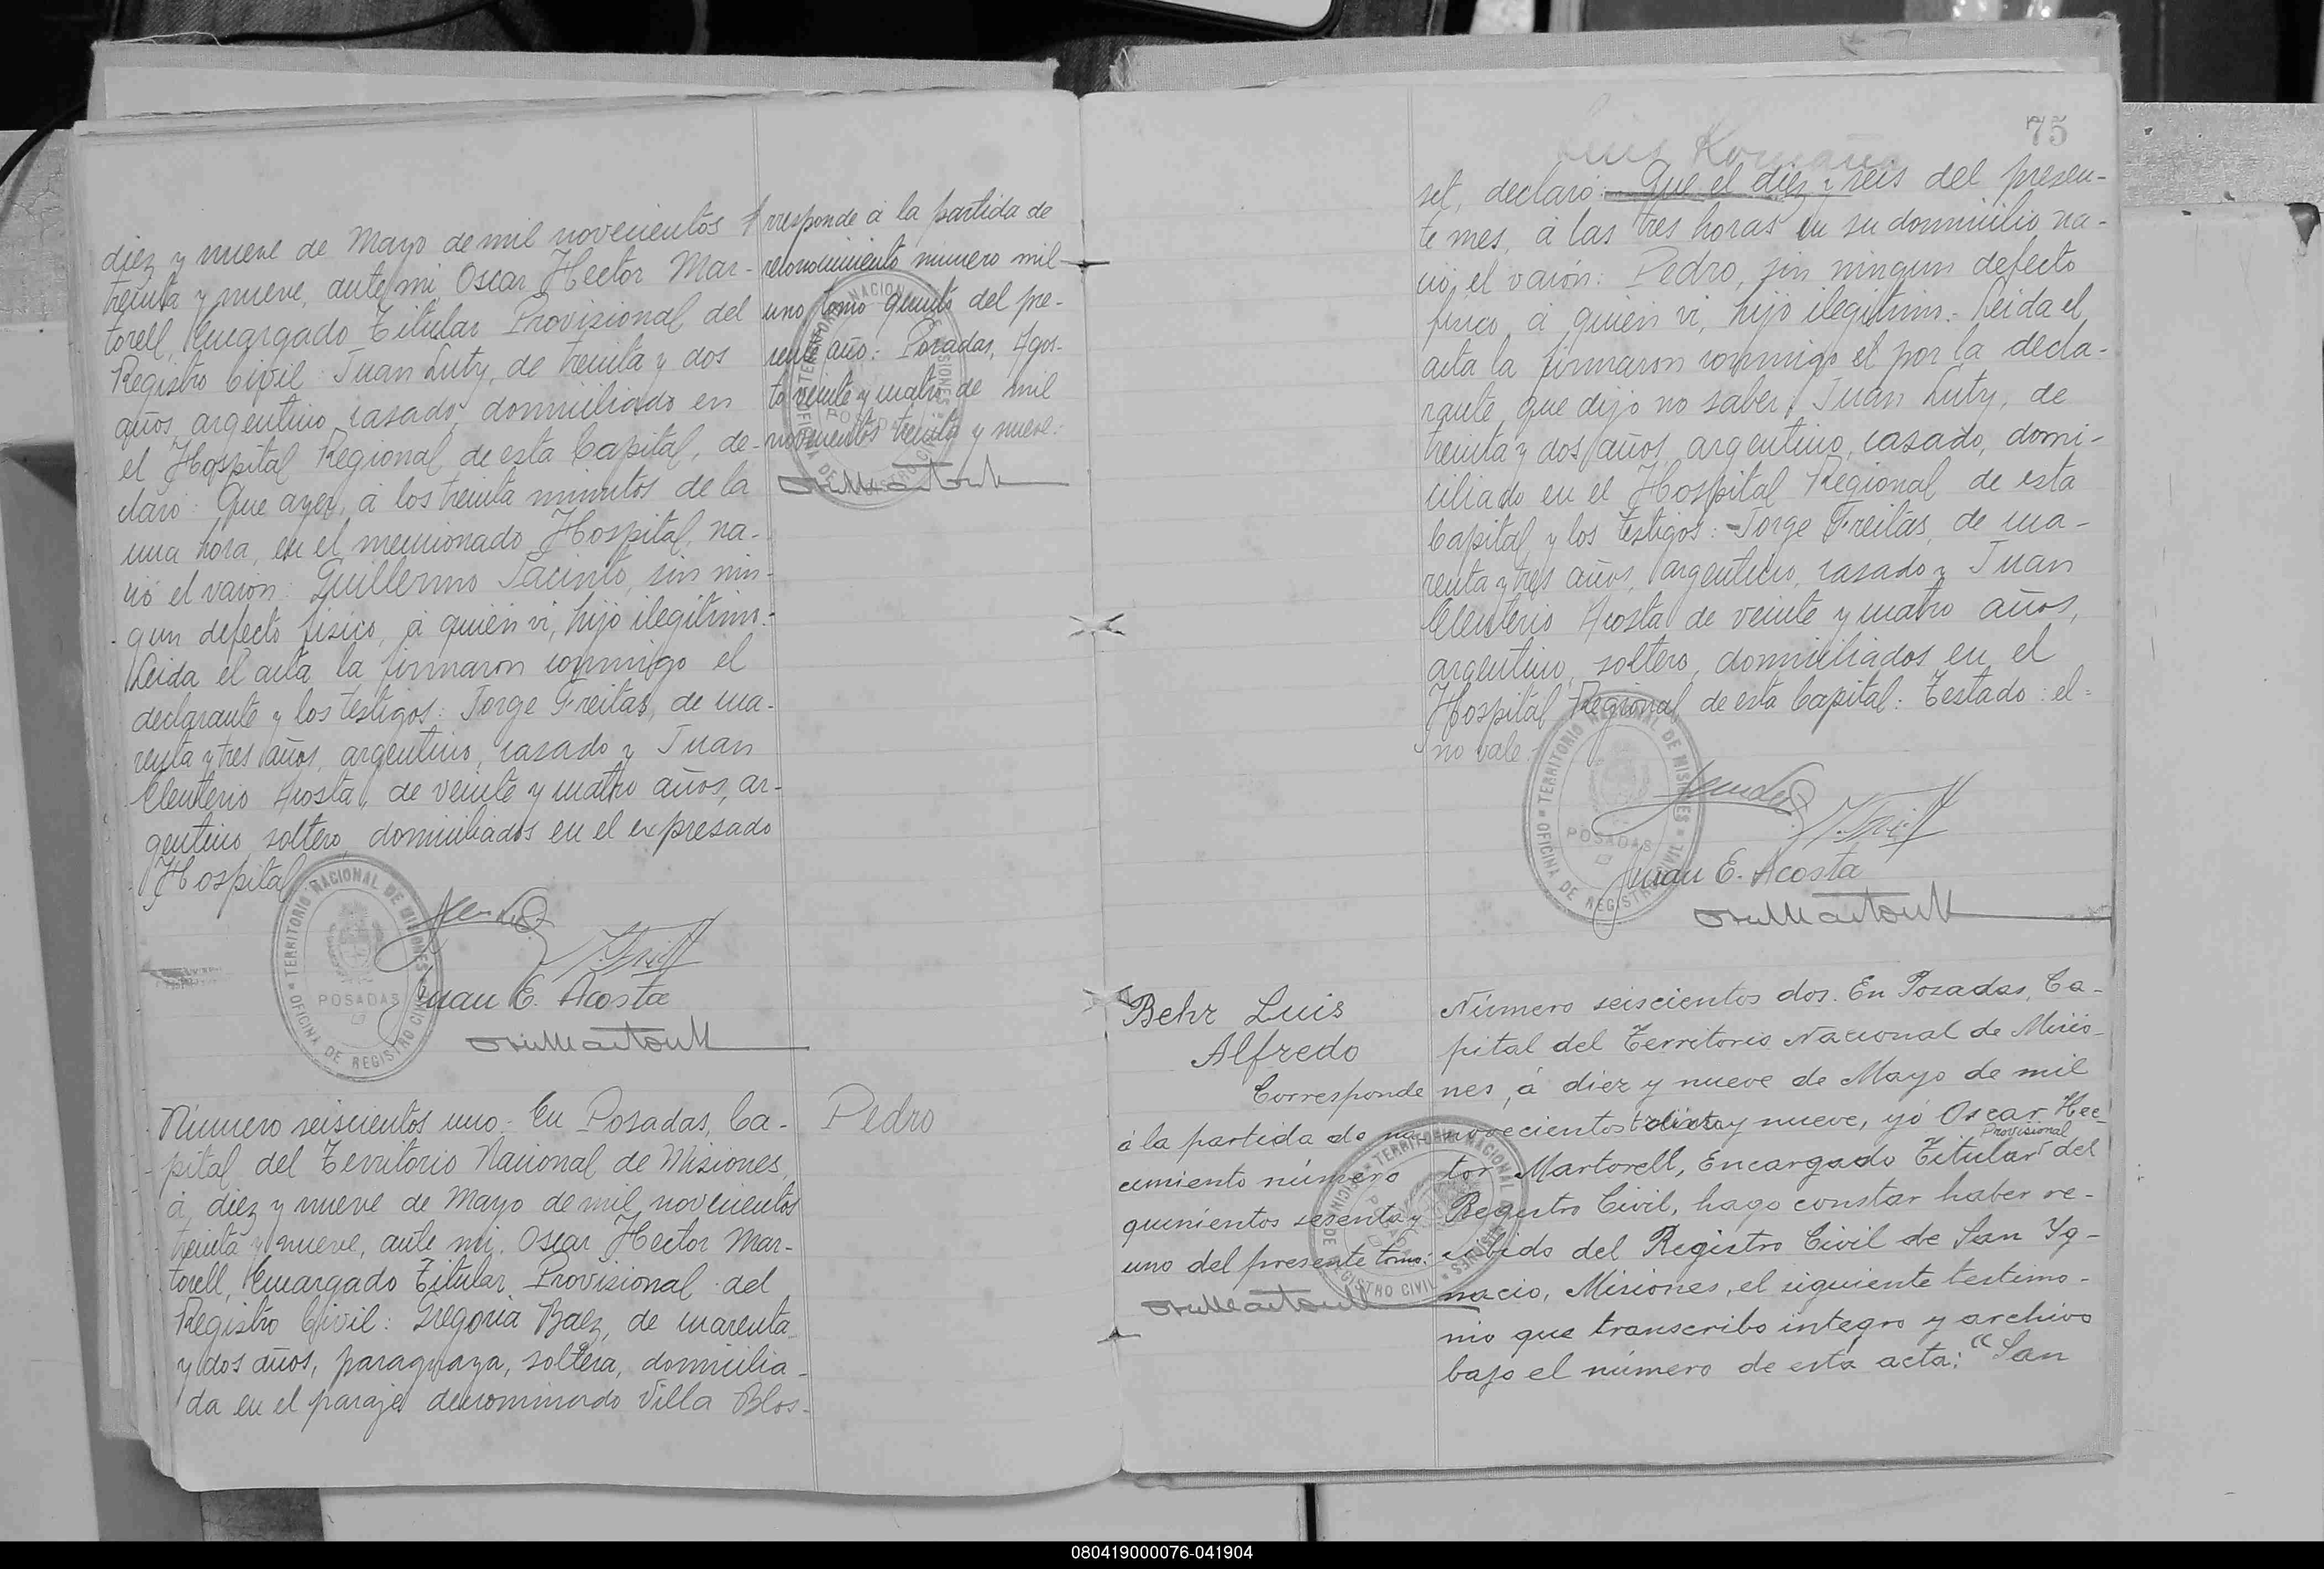 diez y nueve de Mayo de mil novecientos
treinta y nueve, ante mi, Oscar Hector Mar-
torell, Encargado Titular Provisional del
Registro Civil: Juan Luty, de treinta y dos
años, argentino, casado, domiciliado en
el Hospital Regional de esta Capital, de-
claró: Que ayer, á los treinta minutos de la
una hora, en el mencionado Hospital, na-
ció el varon: Guillermo Jacinto, sin nin-
gun defecto fisico, á quién vi, hijo ilegitimo.-
Leida el acta la firmaron conmigo el
declarante y los testigos: Jorge Freitas, de cua-
renta y tres años, argentino, casado y Juan
Eleuterio Acosta, de veinte y cuatro años, ar-
gentino, soltero, domiciliados en el expresado
Hospital
Juan E. Acosta
rresponde á la partida de
reconocimiento número mil
uno tomo quinto del pre-
sente año: Posadas, Agos-
to veinte y cuatro de mil
novecientos treinta y nueve:
TERRITORIO NACIONAL DE MISIONES
POSADAS
OFICINA DE REGISTRO CIVIL
Número seiscientos uno: En Posadas, Ca-
pital del Territorio Nacional de Misiones,
á diez y nueve de Mayo de mil novecientos
treinta y nueve, ante mi, Oscar Hector Mar-
torell, Encargado Titular Provisional del
Registro Civil: Gregoria Baez, de cuarenta
y dos años, paraguaya, soltera, domicilia-
da en el paraje denominado Villa Blos-
Pedro
75
Luis
set, declaró: Que el diez y seis del presen-
te mes, á las tres horas en su domicilio, na-
ció, el varón: Pedro, sin ningun defecto
fisico, á quién vi, hijo ilegitimo.- Leida el
acta la firmaron conmigo el por la decla-
rante, que dijo no saber, Juan Luty, de
treinta y dos años, argentino, casado, domi-
ciliado en el Hospital Regional de esta
Capital, y los testigos: Jorge Freitas, de cua-
renta y tres años, argentino, casado y Juan
Eleuterio Acosta de veinte y cuatro años,
argentino, soltero, domiciliados en el
Hospital Regional de esta Capital: Testado: el=
no vale:
TERRITORIO NACIONAL DE MISIONES
POSADAS
OFICINA DE REGISTRO CIVIL
Juan E. Acosta
Behr Luis
Alfredo
Corresponde
á la partida de na-
cimiento número
quinientos sesenta y
uno del presente tomo:
Número seiscientos dos. En Posadas, Ca-
pital del Territorio Nacional de Misio-
nes, á diez y nueve de Mayo de mil
novecientos treinta y nueve, yó Oscar Hec-
tor Martorell, Encargado Titular Provisional del
Registro Civil, hago constar haber re-
cibido del Registro Civil de San Ig-
nacio, Misiones, el siguiente testimo-
nio que transcribo integro y archivo
bajo el número de esta acta: "San
080419000076-041904